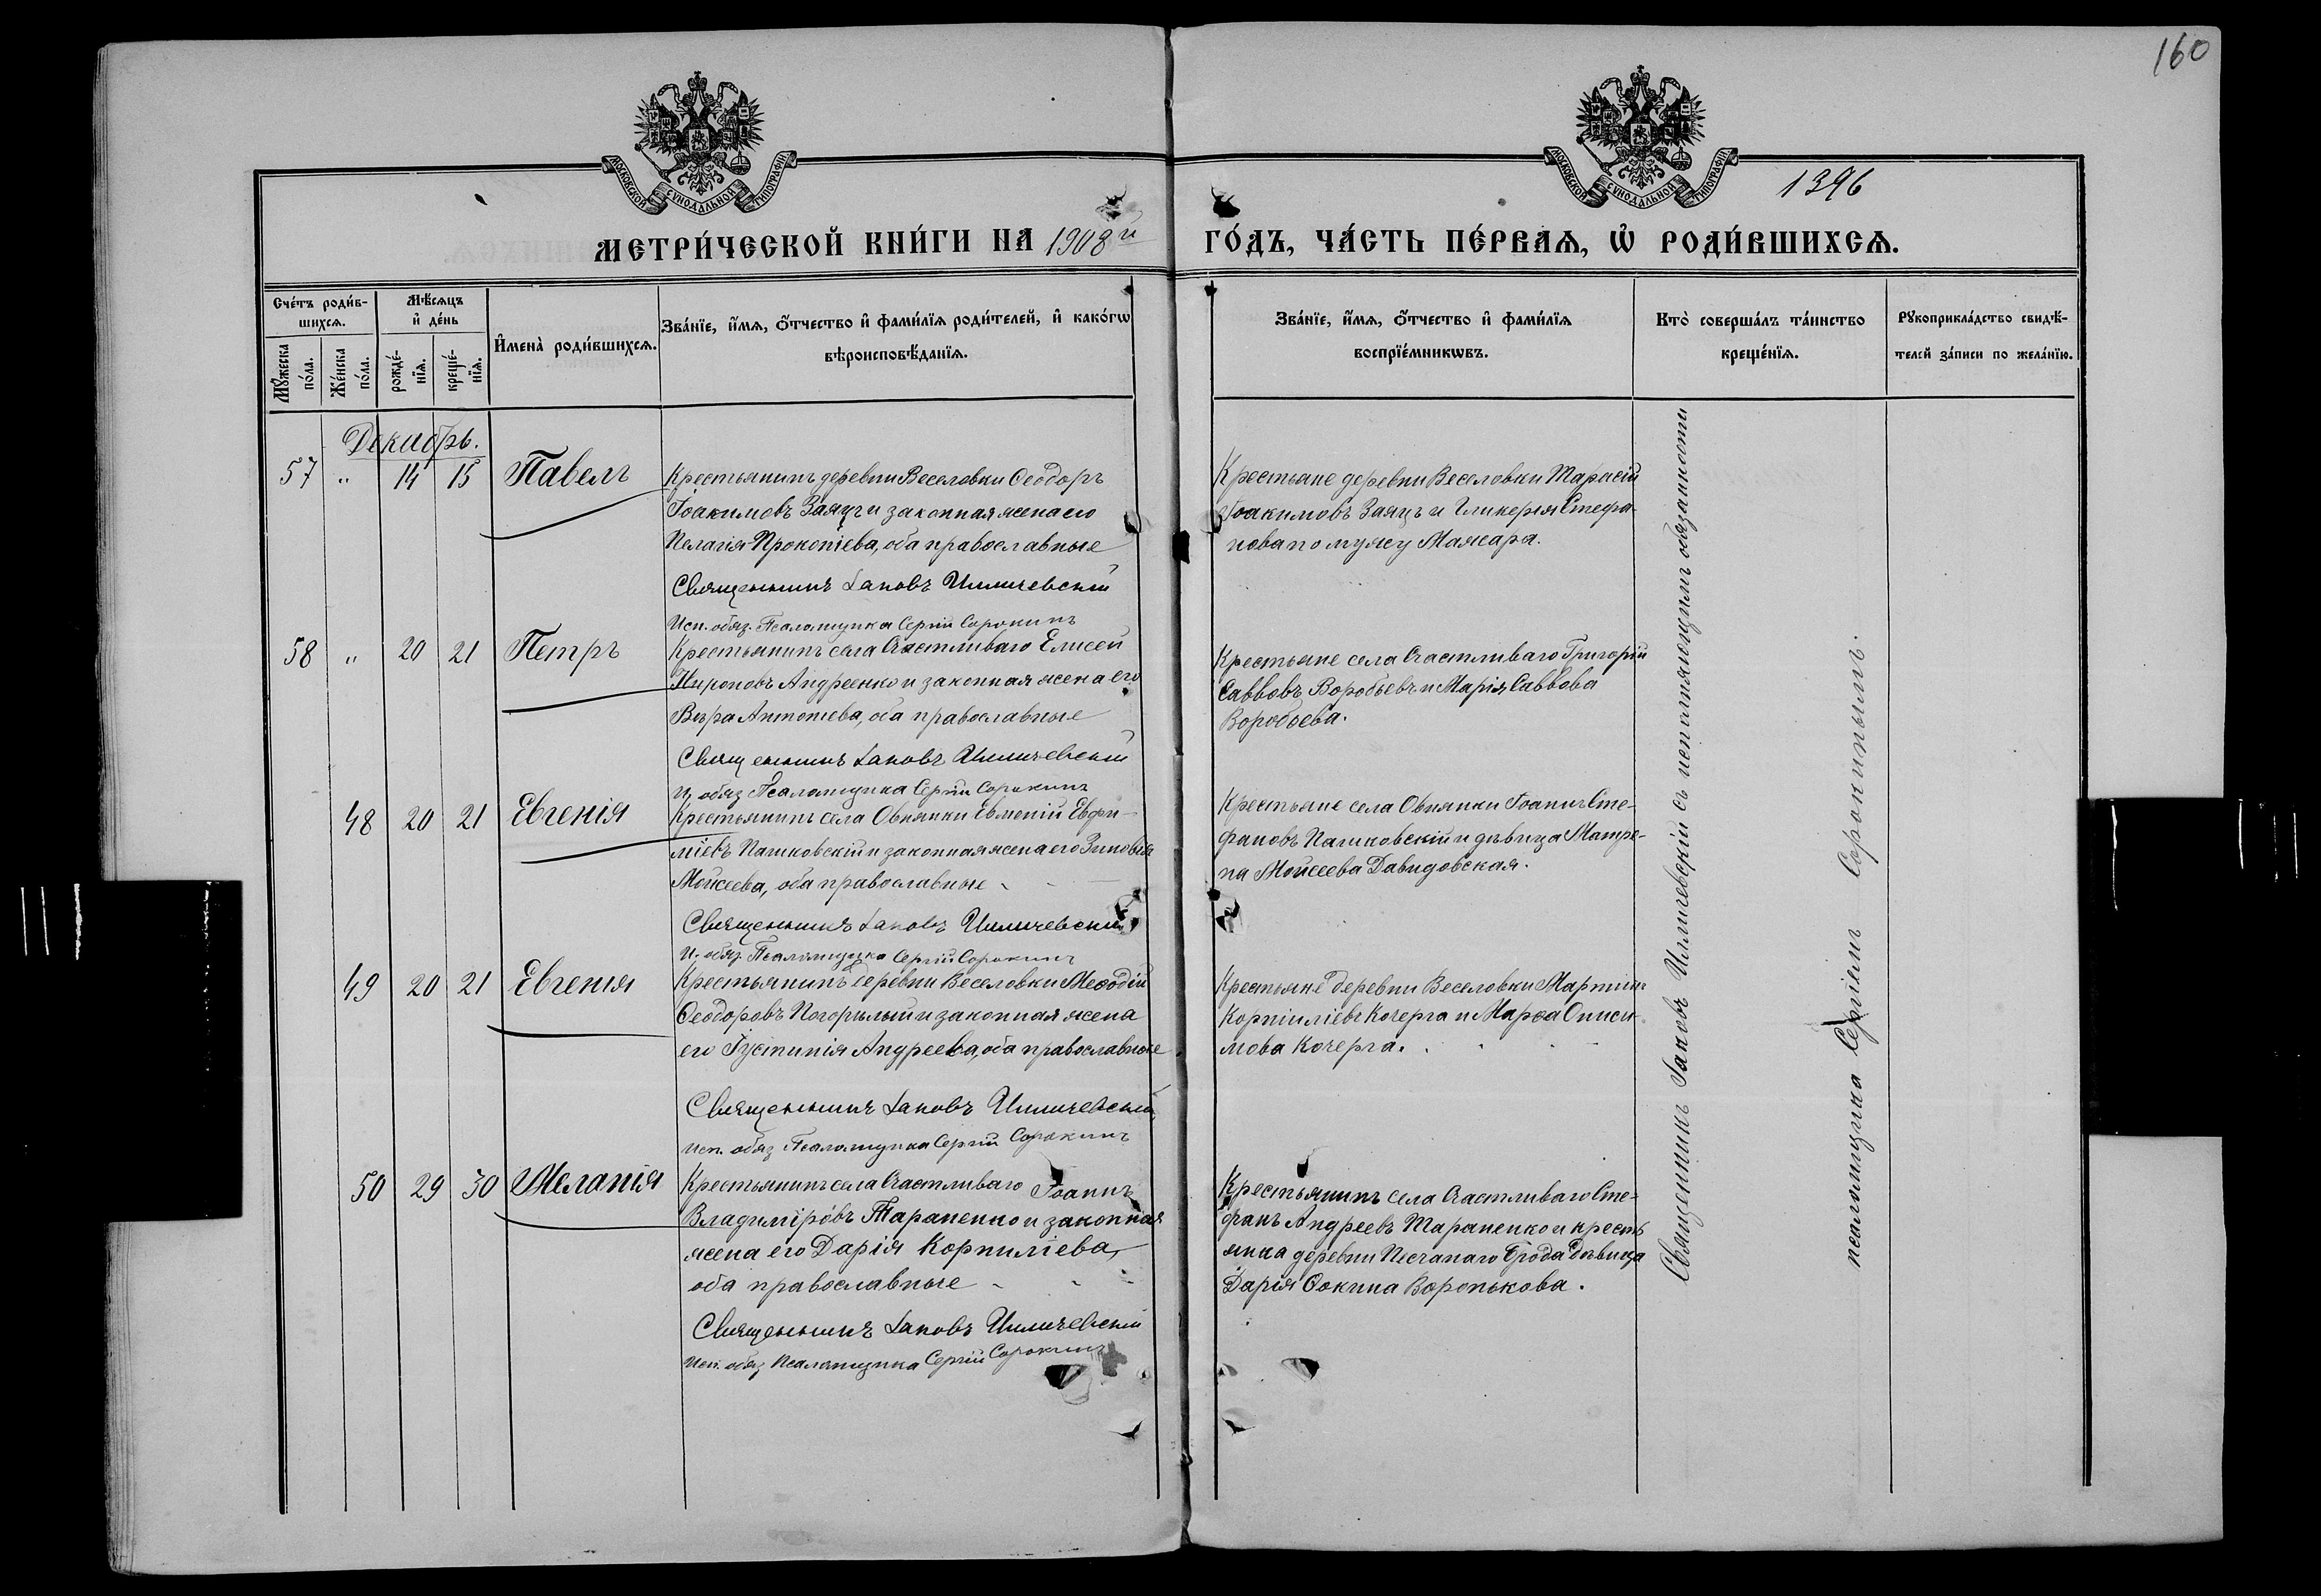 160
МОСКОВСКОЙ СѴНОДАЛЬНОЙ ТИПОГРАФІИ
МОСКОВСКОЙ СѴНОДАЛЬНОЙ ТИПОГРАФІИ
1396
МЕТРИ́ЧЕСКОЙ КНИ́ГИ НА 1908й ГО́ДЪ, ЧА́СТЬ ПЕ́РВАЯ, Ѡ҆ РОДИ́ВШИХСѦ.
Сче́тъ роди́в-
шихсѧ.
Мѣ́сѧцъ
и҆ де́нь
И҆мена̀ роди́вшихсѧ.
Зва́нїе, и҆́мѧ, ѻ҆́тчество и҆ фами́лїѧ роди́телей, и҆ како́гѡ
вѣроисповѣ́данїѧ.
Зва́нїе, и҆́мѧ, ѻ҆́тчество и҆ фами́лїѧ
воспрїе́мникѡвъ.
Кто̀ соверша́лъ та́инство
креще́нїѧ.
Рꙋкоприкла́дство свидѣ́-
телей за́писи по жела́нїю.
Мꙋ́жеска
по́ла.
Же́нска
по́ла.
рожде́-
нїѧ.
креще́-
нїѧ.
Декабрь.
57 " 14 15 Павелъ
Крестьянинъ деревни Веселовки Ѳеодоръ
Іоакимовъ Заяцъ и законная жена его
Пелагія Прокопіева, оба православные
Священникъ Іаковъ Илличевскій
Исп. обяз. Псаломщика Сергій Сорокинъ
Крестьяне деревни Веселовки Тарасій
Іоакимовъ Заяцъ и Гликерія Стефа-
нова по мужу Мажара.
58 " 20 21 Петръ
Крестьянинъ села Счастливаго Елисей
Мироновъ Андреенко и законная жена его
Вѣра Антоніева, оба православные
Священникъ Іаковъ Илличевскій
И. обяз Псаломщика Сергій Сорокинъ
Крестьяне села Счастливаго Григорій
Саввовъ Воробьевъ и Марія Саввова
Воробьева.
48 20 21 Евгенія
Крестьянинъ села Овнянки Евменій Евфи-
міевъ Пашковскій и законная жена его Зиновія
Мойсеева, оба православные
Священникъ Іаковъ Илличевскій
И. обяз. Псаломщика Сергій Сорокинъ
Крестьяне села Овнянки Іоаннъ Сте-
фановъ Пашковскій и дѣвица Матре-
на Мойсеева Давидовская.
49 20 21 Евгенія
Крестьянинъ деревни Веселовки Меѳодій
Ѳеодоровъ Погорѣлый и законная жена
его Іустинія Андреева, оба православные
Священникъ Іаковъ Илличевскій
Исп. обяз Псаломщика Сергій Сорокинъ
Крестьяне деревни Веселовки Мартинъ
Корниліевъ Кочерга и Марѳа Ониси-
мова Кочерга.
50 29 30 Меланія
Крестьянинъ села Счастливаго Іоаннъ
Владиміровъ Тараненко и законная
жена его Дарія Корниліева,
оба православные
Священникъ Іаковъ Илличевскій
Исп. обяз Псаломщика Сергій Сорокинъ
Крестьянинъ села Счастливаго Сте-
фанъ Андреевъ Тараненко и кресть
янка деревни Песчанаго Брода дѣвица
Дарія Ѳокина Воронькова.
Священникъ Іаковъ Илличевскій съ исполняющимъ обязанности
псаломщика Сергіемъ Сорокинымъ.